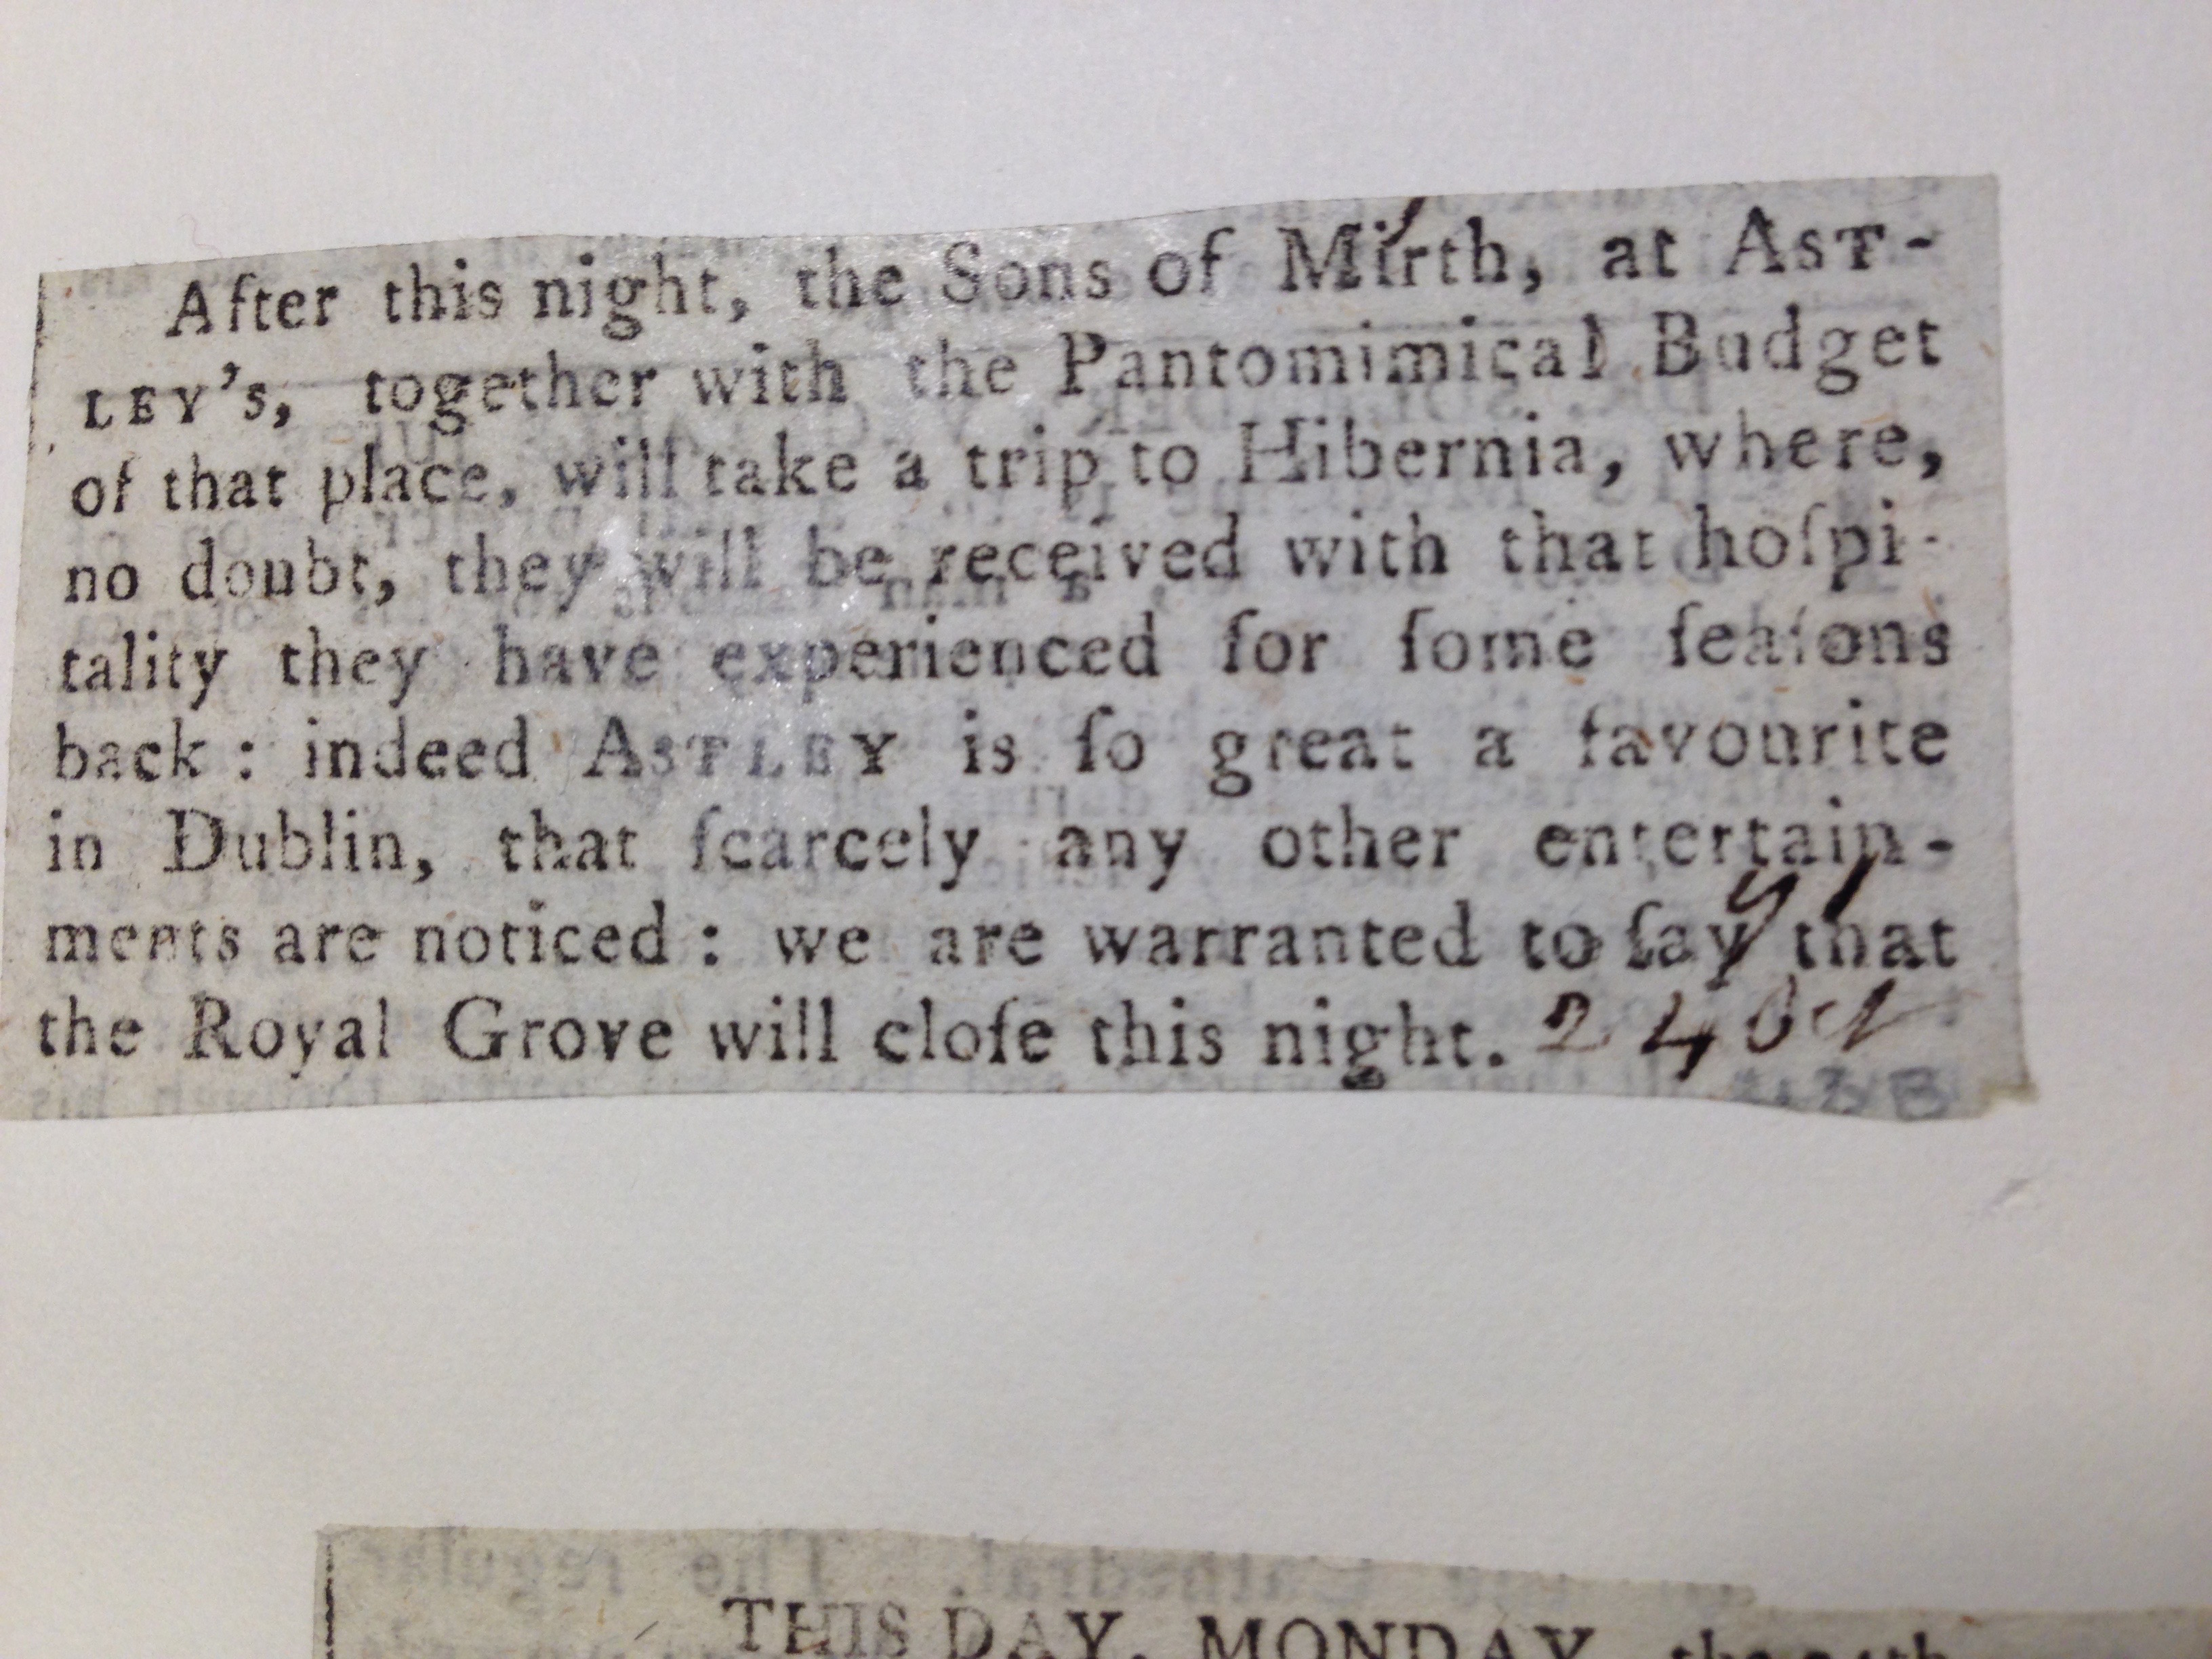 After this night, the Sons of Mirth, at AST-
LEY's, together with the Pantomimical Budget
of that place, will take a trip to Hibernia, where,
no doubt, they will be received with that hoſpi-
tality they have experienced for ſome ſeaſons
back : indeed ASTLEY is ſo great a favourite
in Dublin, that ſcarcely any other entertain-
ments are noticed : we are warranted to ſay that
the Royal Grove will cloſe this night. 24
THIS DAY, MONDAY,